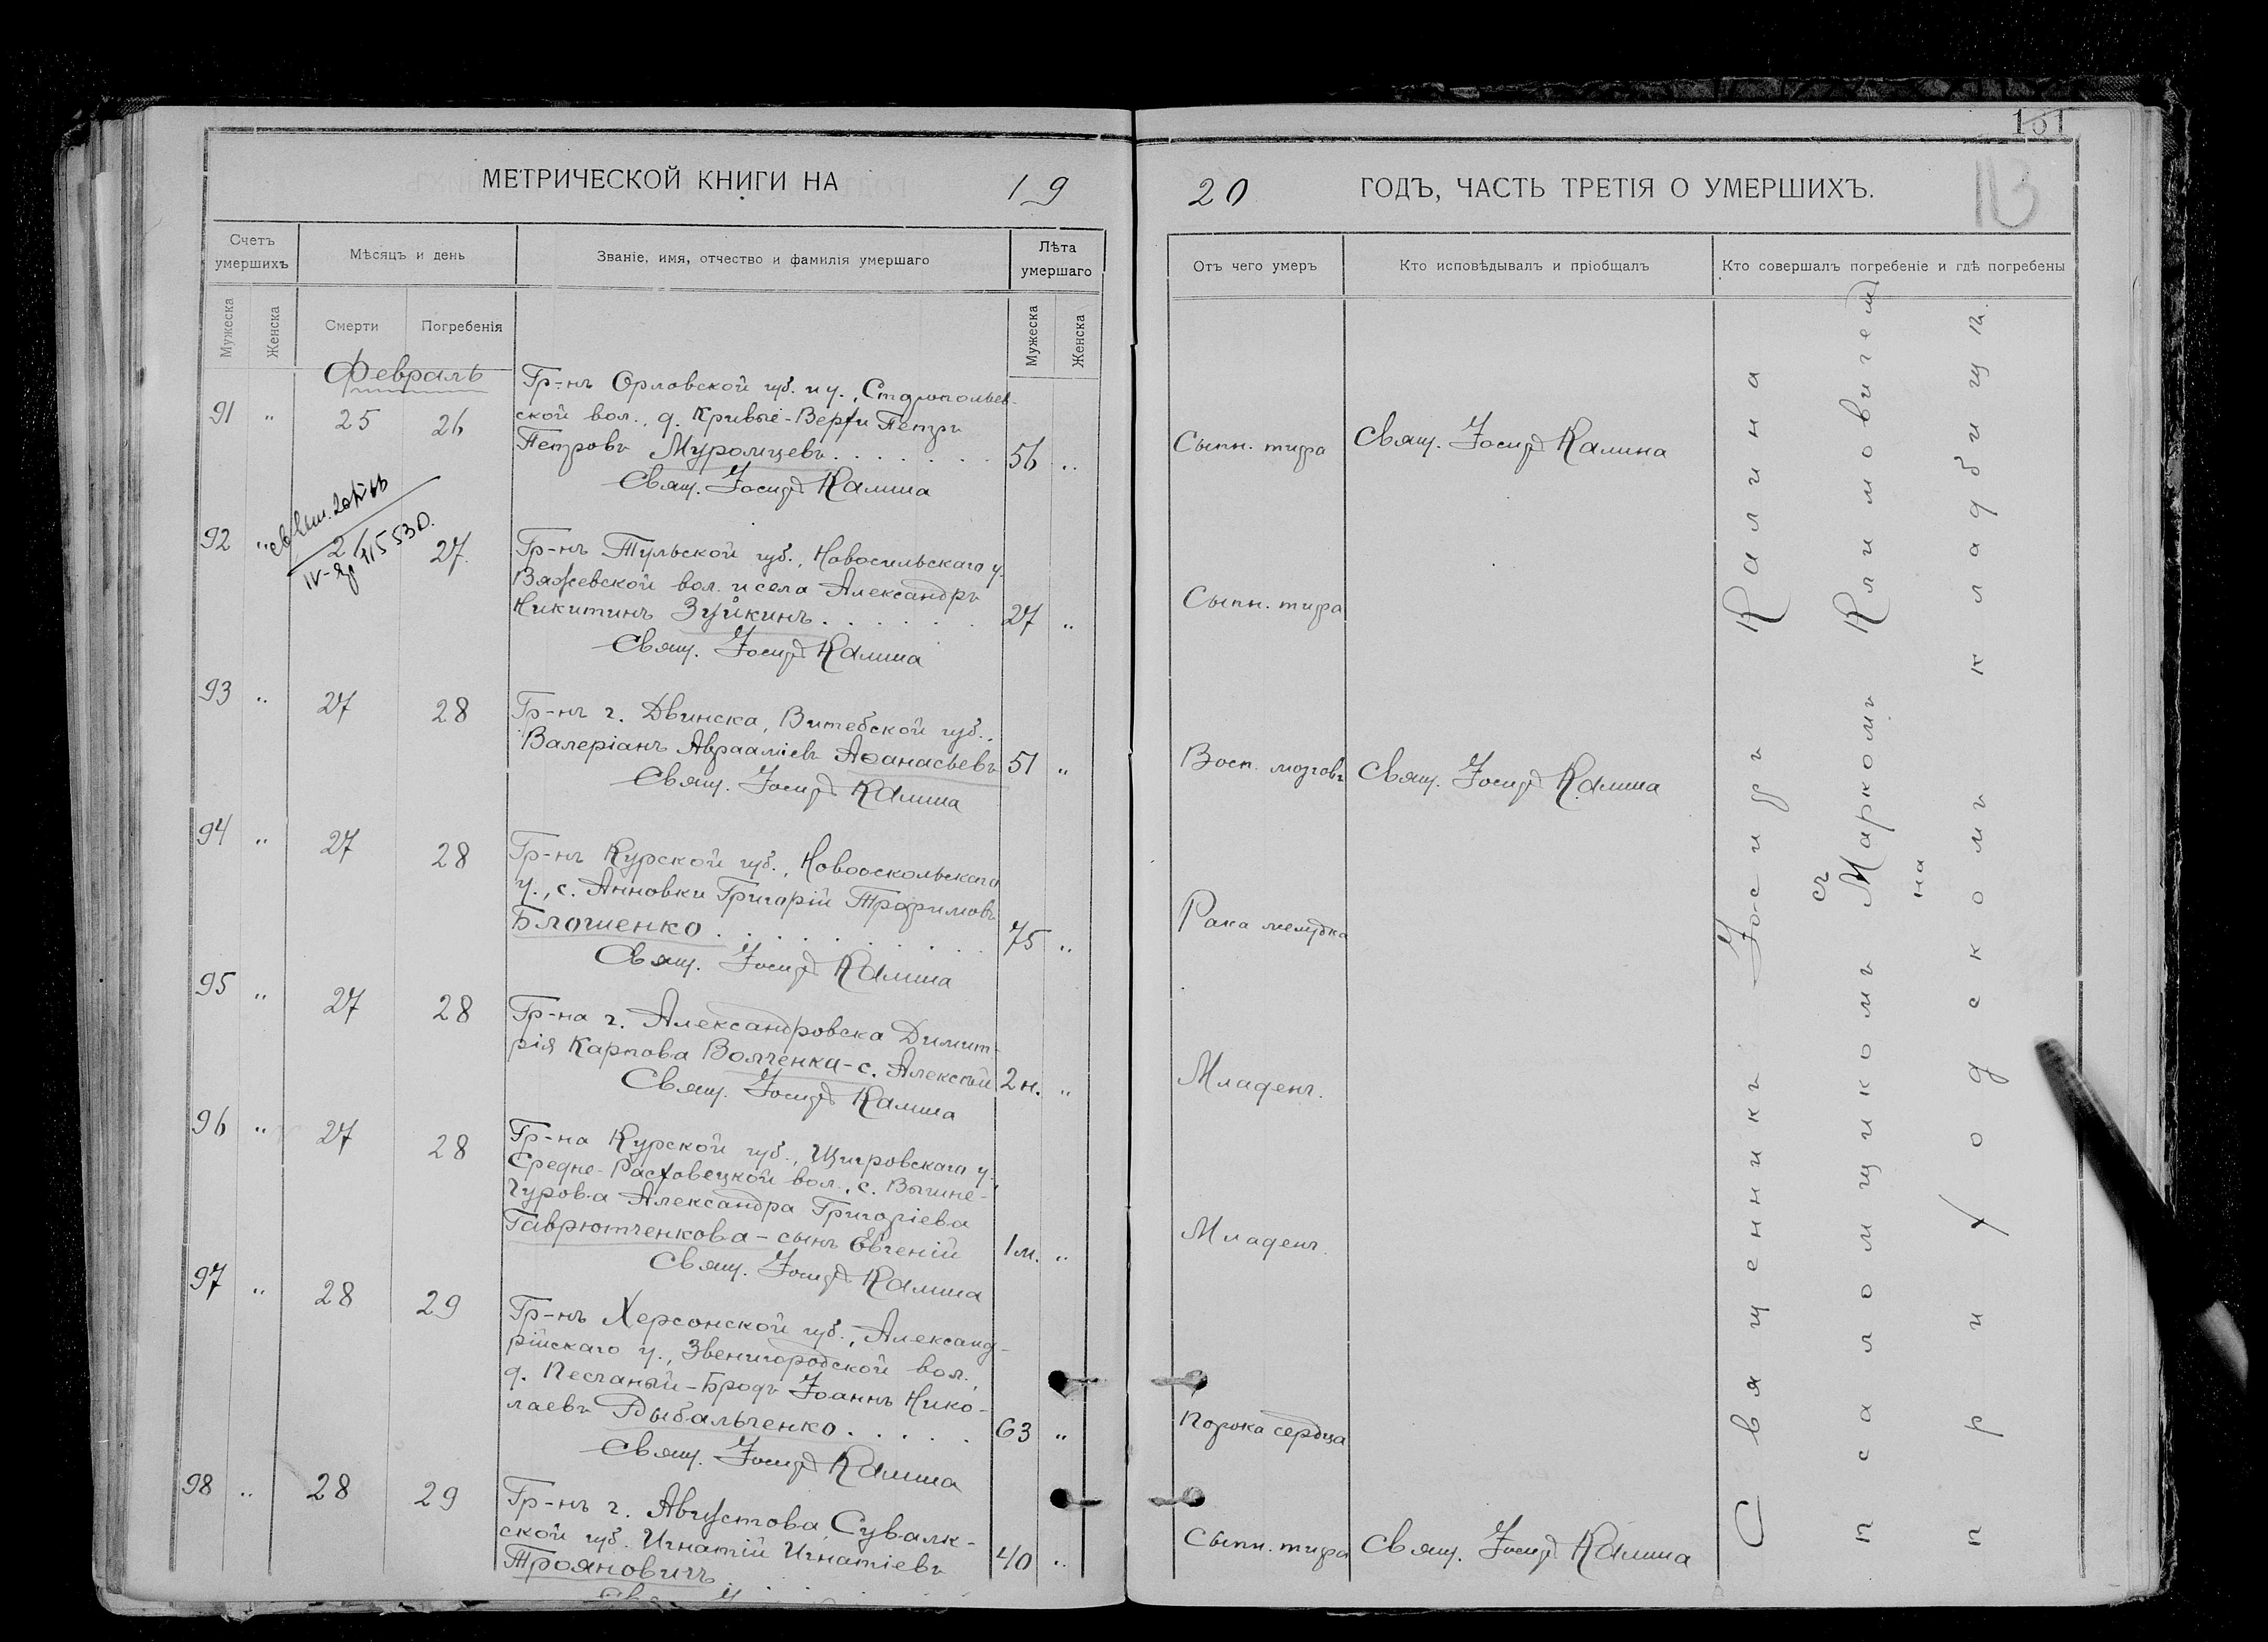 161
МЕТРИЧЕСКОЙ КНИГИ НА 19
20 ГОДЪ, ЧАСТЬ ТРЕТІЯ О УМЕРШИХЪ.
Счетъ умершихъ
Мѣсяцъ и день
Званіе, имя, отчество и фамилія умершаго
Лѣта умершаго
Мужеска
Женска
Смерти
Погребенія
Мужеска
Женска
Отъ чего умеръ
Кто исповѣдывалъ и пріобщалъ
Кто совершалъ погребеніе и гдѣ погребены
Февраль
91 " 25 26
Гр-нъ Орловской губ. и у.,
ской вол., д. Кривые-Верхи Петръ
Петровъ Муромцевъ. 56 "
Свящ. Іосифъ Калина
Сыпн. тифа
Свящ. Іосифъ Калина
92 " 27.
115530.
Гр-нъ Тульской губ., Новосильскаго у.
Вяжевской вол. и села Александръ
Никитинъ Зуйкинъ. 27 "
Свящ. Іосифъ Калина
Сыпн. тифа
93 " 27 28
Гр-нъ г. Двинска, Витебской губ.,
Валеріанъ Авраамiевъ Аѳанасьевъ 51 "
Свящ. Іосифъ Калина
Восп. мозговъ
Свящ. Іосифъ Калина
94 " 27 28
Гр-нъ Курской губ., Новооскольскаго
у., с. Анновки Григорій Трофимовъ
Блошенко. 75 "
Свящ. Іосифъ Калина
Рака желудка
95 " 27 28
Гр-на г. Александровска Димит-
рія Карпова Волченка-с. Алексѣй 2 н. "
Свящ. Іосифъ Калина
Младенч.
96 " 27 28
Гр-на Курской губ., Щигровскаго у.,
Средне-Расховецкой вол., с. Вышне-
Гурова Александра Григоріева
Гаврютченкова - сынъ Евгеній 1 м. "
Свящ. Іосифъ Калина
Младенч.
97 " 28 29
Гр-нъ Херсонской губ., Александ-
рійскаго у., Звенигородской вол.,
д. Песчаный-Бродъ Іоаннъ Нико-
лаевъ Рыбальченко. 63 "
Свящ. Іосифъ Калина
Порока сердца
98 " 28 29
Гр-нъ г. Августова, Сувалк-
ской губ. Игнатій Игнатіевъ
Трояновичъ 40 "
Сыпн. тифа
Свящ. Іосифъ Калина
Священникъ Іосифъ Калина
съ
псаломщикомъ Маркомъ Климовичемъ
на
приходскомъ кладбищѣ.